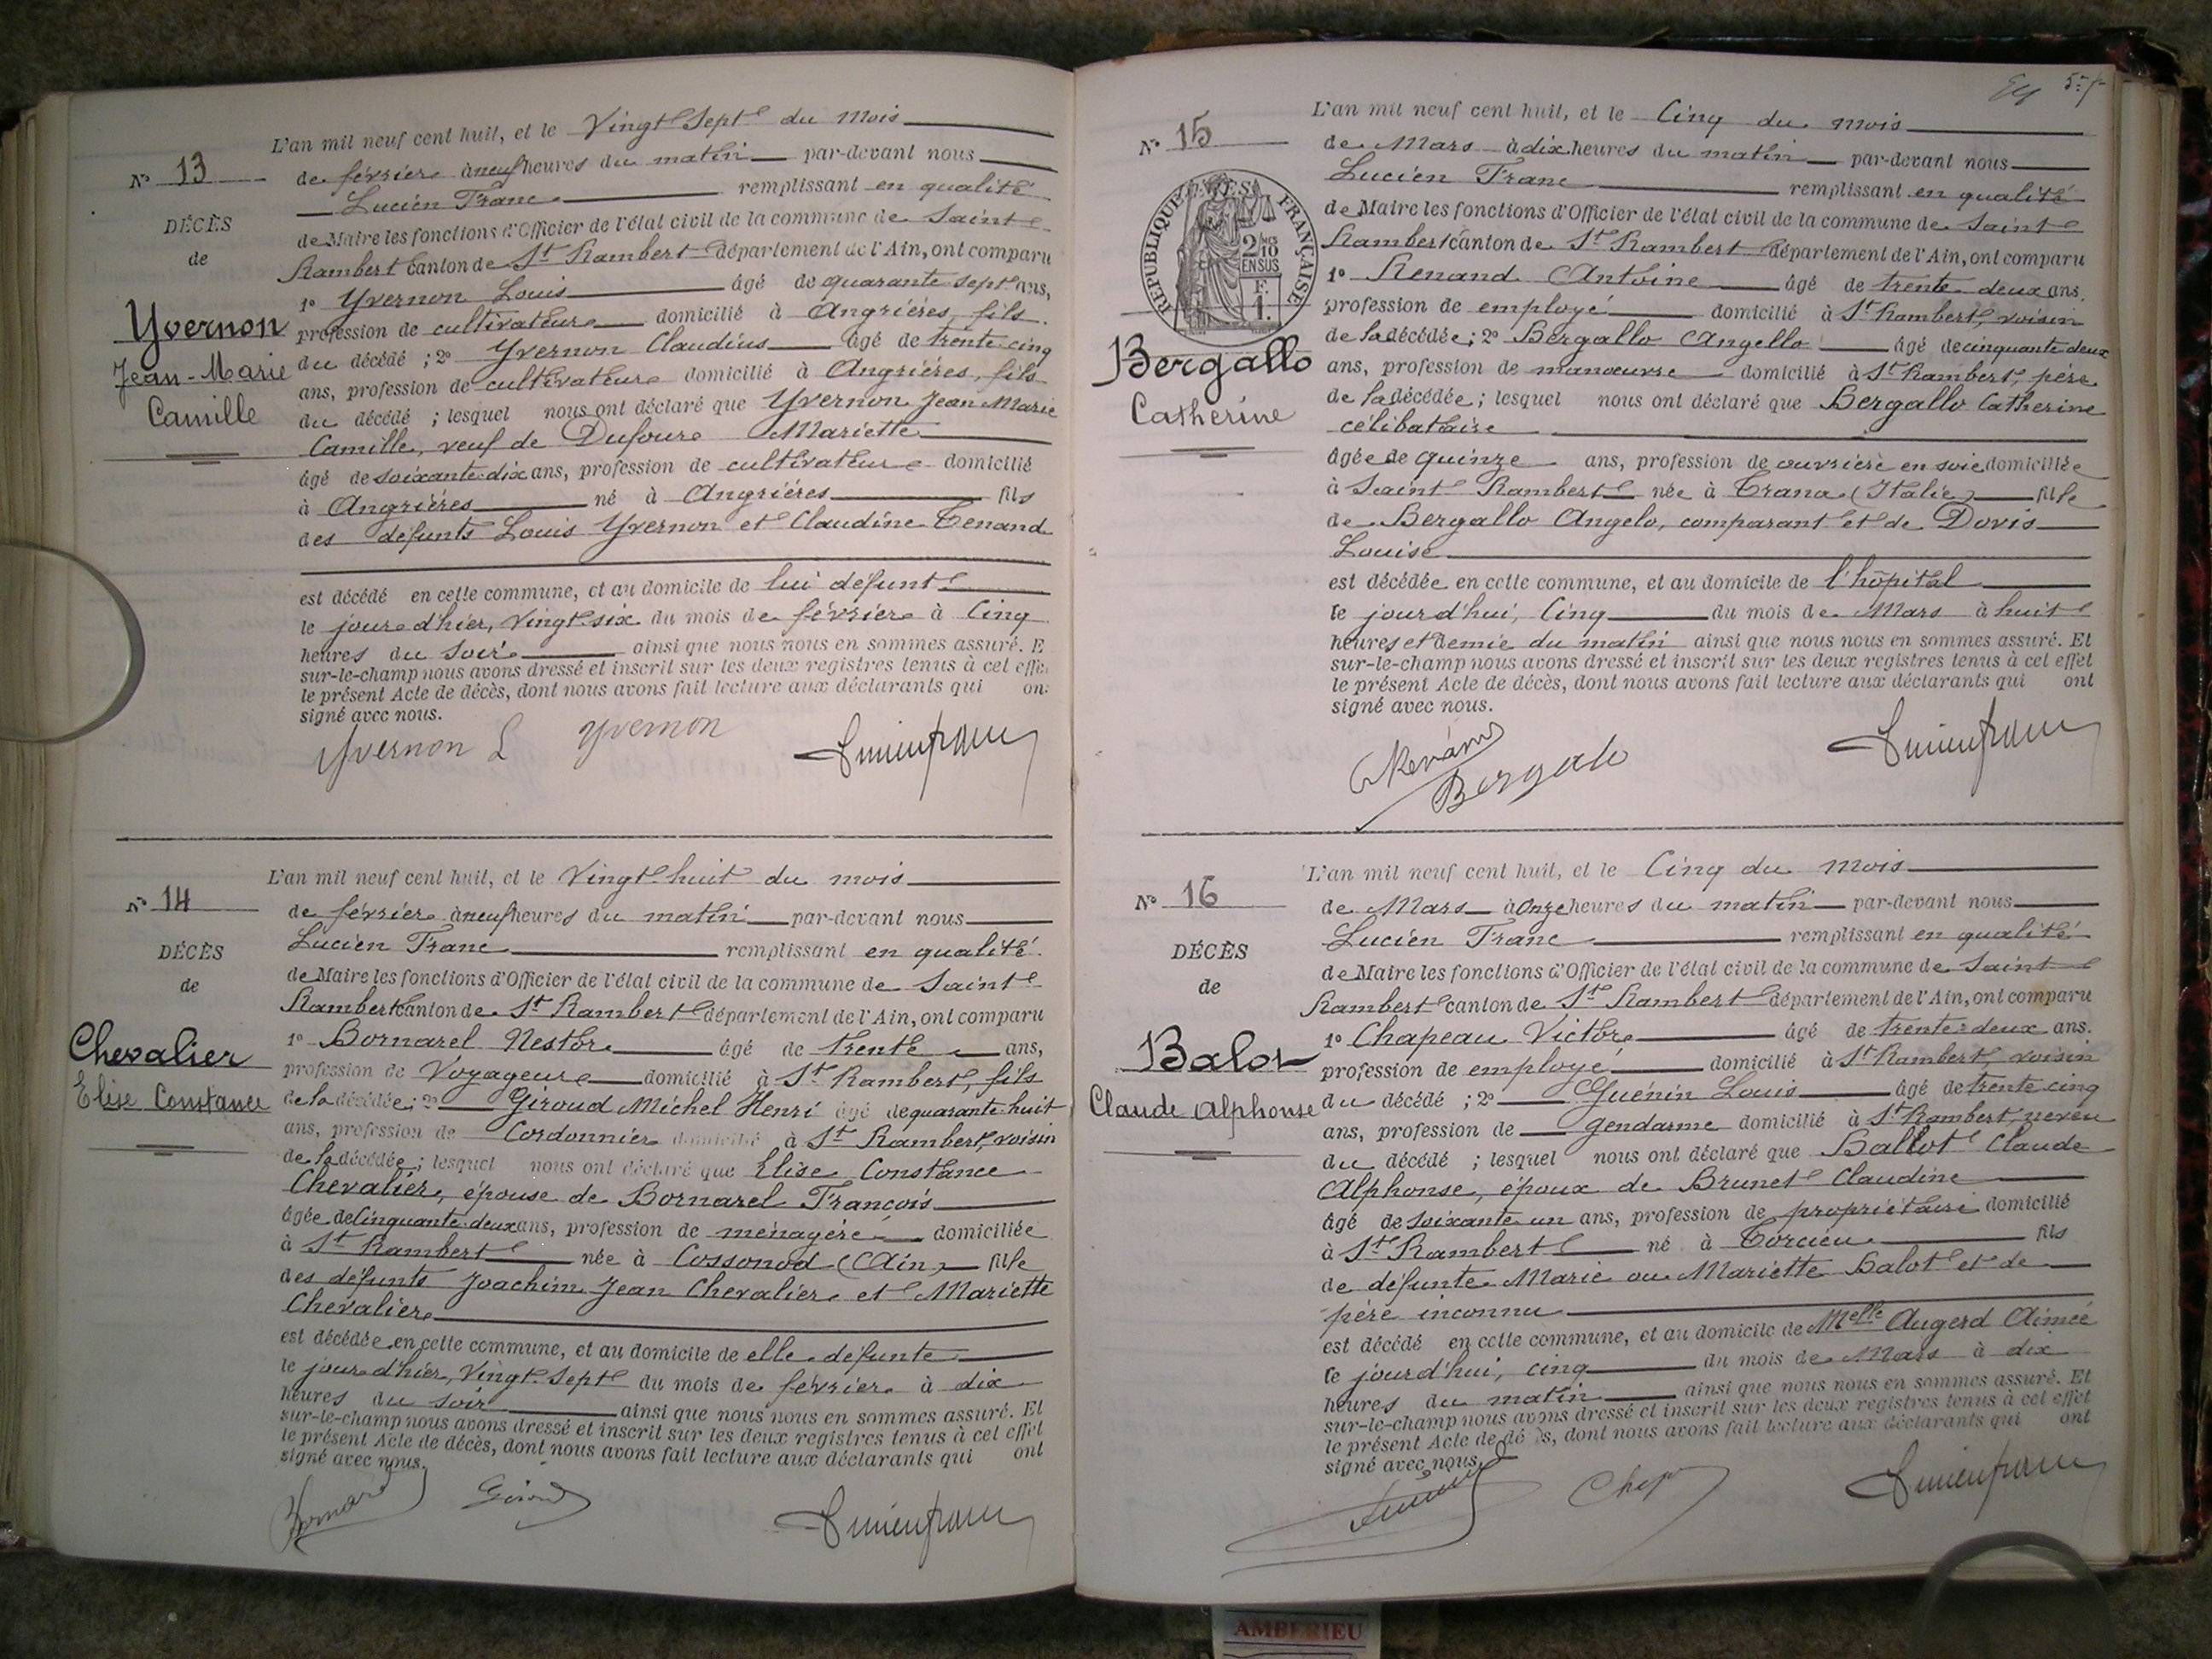 N° 13
DÉCÈS
de
Yvernon
Jean-Marie
Camille
L'an mil neuf cent huit, et le Vingt Sept du mois
de février à neuf heures du matin par-devant nous
Lucien Franc remplissant en qualité
de Maire les fonctions d'Officier de l'état civil de la commune de Saint
Rambert canton de St Rambert département de l'Ain, ont comparu
1° Yvernon Louis âgé de quarante sept ans,
profession de cultivateur domicilié à Angrières, fils
du décédé ; 2° Yvernon Claudius âgé de trente cinq
ans, profession de cultivateur domicilié à Angrières, fils
du décédé ; lesquel nous ont déclaré que Yvernon Jean Marie
Camille, veuf de Dufour Mariette
âgé de soixante-dix ans, profession de cultivateur domicilié
à Angrières né à Angrières fils
des défunts Louis Yvernon et Claudine Tenand
est décédé en cette commune, et au domicile de lui défunt
le jour d'hier, vingt-six du mois de février à cinq
heures du soir ainsi que nous nous en sommes assuré. E
sur-le-champ nous avons dressé et inscrit sur les deux registres tenus à cet effe
le présent Acte de décès, dont nous avons fait lecture aux déclarants qui on
signé avec nous.
Yvernon L Yvernon Lucien Franc
N° 14
DÉCÈS
de
Chevalier
Elise Constance
L'an mil neuf cent huit, et le Vingt huit du mois
de février à neuf heures du matin par-devant nous
Lucien Franc remplissant en qualité
de Maire les fonctions d'Officier de l'état civil de la commune de Saint
Rambert canton de St Rambert département de l'Ain, ont comparu
1° Bornarel Nestor âgé de trente ans,
profession de Voyageur domicilié à St Rambert, fils
de la décédée ; 2° Giroud Michel Henri âgé de quarante-huit
ans, profession de Cordonnier domicilié à St Rambert, voisin
de la décédée ; lesquel nous ont déclaré que Elise Constance
Chevalier, épouse de Bornarel François
âgée de cinquante-deux ans, profession de ménagère domiciliée
à St Rambert née à Cossonod (Ain) fille
des défunts Joachim Jean Chevalier et Mariette
Chevalier
est décédée en cette commune, et au domicile de elle défunte
le jour d'hier, Vingt-Sept du mois de février à dix
heures du soir ainsi que nous nous en sommes assuré. Et
sur-le-champ nous avons dressé et inscrit sur les deux registres tenus à cet effet
le présent Acte de décès, dont nous avons fait lecture aux déclarants qui ont
signé avec nous.
Bornarel Giroud Lucien Franc
N° 15
RÉPUBLIQUE FRANÇAISE
2/10 EN SUS
F. 1.
Bergallo
Catherine
L'an mil neuf cent huit, et le Cinq du mois
de Mars à dix heures du matin par-devant nous
Lucien Franc remplissant en qualité
de Maire les fonctions d'Officier de l'état civil de la commune de Saint
Rambert canton de St Rambert département de l'Ain, ont comparu
1° Renand Antoine âgé de trente-deux ans,
profession de employé domicilié à St Rambert, voisin
de la décédée ; 2° Bergallo Angello âgé de cinquante deux
ans, profession de manoeuvre domicilié à St Rambert, père
de la décédée ; lesquel nous ont déclaré que Bergallo Catherine
célibataire
âgée de quinze ans, profession de ouvrière en soie domiciliée
à Saint Rambert née à Trana (Italie) fille
de Bergallo Angelo, comparant et de Dovis
Louise
est décédée en cette commune, et au domicile de l'hôpital
le jourd'hui, Cinq du mois de Mars à huit
heures et demie du matin ainsi que nous nous en sommes assuré. Et
sur-le-champ nous avons dressé et inscrit sur les deux registres tenus à cet effet
le présent Acte de décès, dont nous avons fait lecture aux déclarants qui ont
signé avec nous.
Renand Bergalo Lucien Franc
N° 16
DÉCÈS
de
Balot
Claude Alphonse
L'an mil neuf cent huit, et le Cinq du mois
de Mars à onze heures du matin par-devant nous
Lucien Franc remplissant en qualité
de Maire les fonctions d'Officier de l'état civil de la commune de Saint
Rambert canton de St Rambert département de l'Ain, ont comparu
1° Chapeau Victor âgé de trente-deux ans.
profession de employé domicilié à St Rambert, voisin
du décédé ; 2° Guénin Louis âgé de trente cinq
ans, profession de gendarme domicilié à St Rambert, neveu
du décédé ; lesquel nous ont déclaré que Ballot Claude
Alphonse, époux de Brunet Claudine
âgé de soixante un ans, profession de propriétaire domicilié
à St Rambert né à Torcieu fils
de défunte Marie ou Mariette Balot et de
père inconnu
est décédé en cette commune, et au domicile de Melle Augerd Aimée
le jourd'hui, cinq du mois de Mars à dix
heures du matin ainsi que nous nous en sommes assuré. Et
sur-le-champ nous avons dressé et inscrit sur les deux registres tenus à cet effet
le présent Acte de décès, dont nous avons fait lecture aux déclarants qui ont
signé avec nous.
Lucien Franc
AMBERIEU